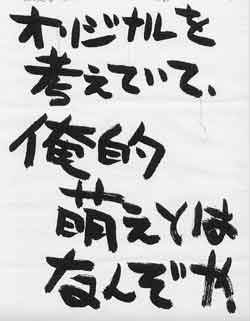 オリジナルを
考えていて、
俺的
萌えとは
なんぞや!